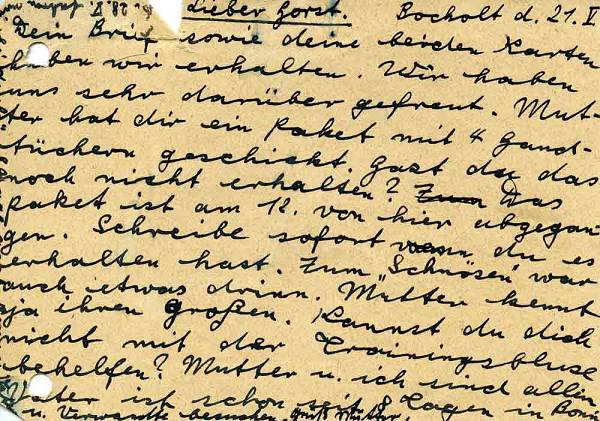 Lieber Horst. Bocholt d. 21. V
Dein Brief sowie deine beiden Karten
haben wir erhalten. Wir haben
uns sehr darüber gefreut. Mut-
ter hat dir ein Paket mit 4 Hand-
tüchern geschickt. Hast du das
noch nicht erhalten? Zum Das
Paket ist am 12. von hier abgegan
gen. Schreibe sofort wenn du es
erhalten hast. Zum "Schnösen" war
auch etwas drinn. Mutter kennt
ja ihren Großen. Kannst du dich
nicht mit der Trainingsbluse
behelfen? Mutter u. ich sind allein
Vater ist schon seit 8 Tagen in Bonn
u. Verwandte besuchen. Gruß Mutter.